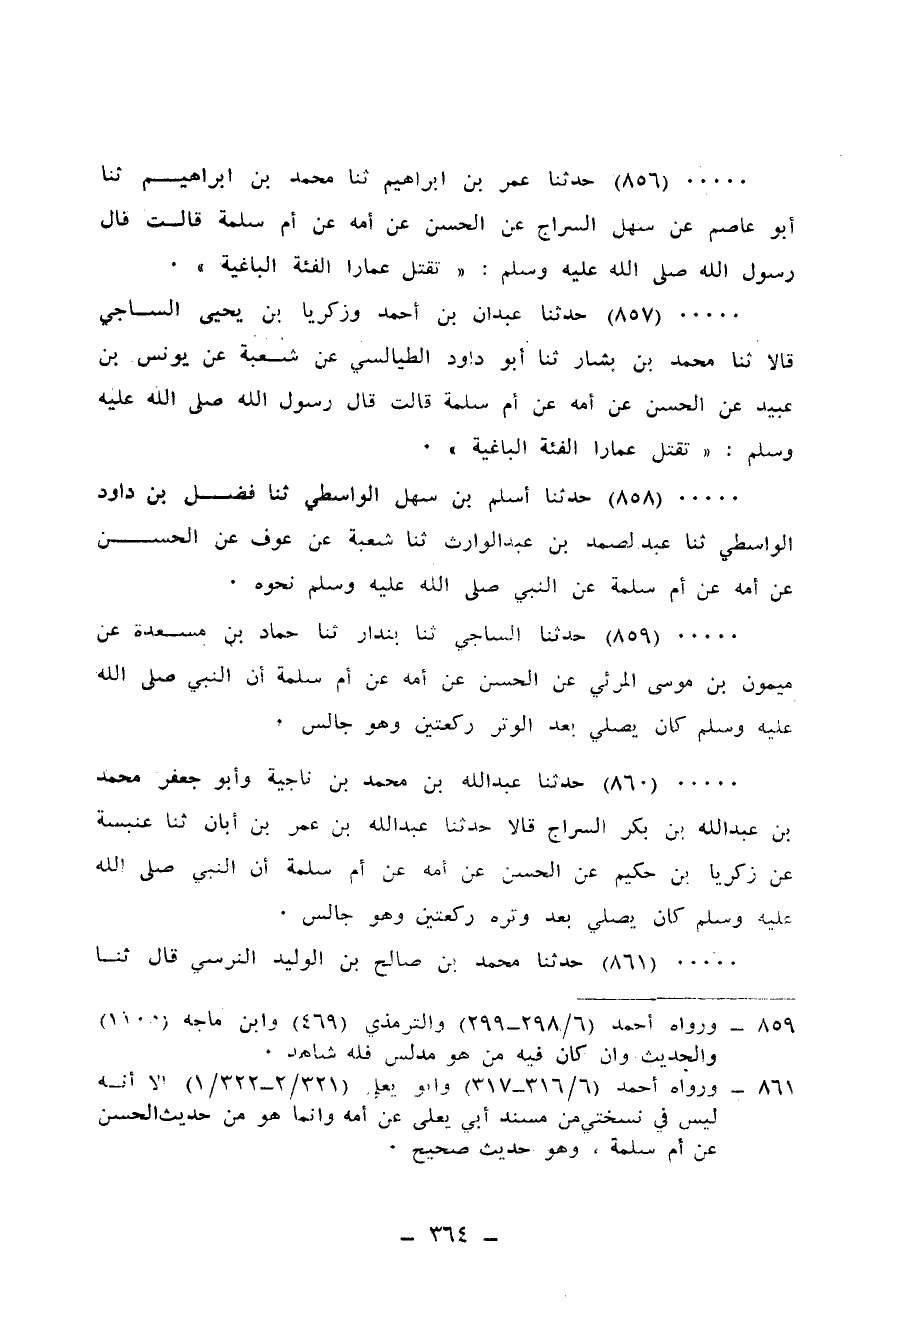 ..... (٨٥٦) حدثنا عمر بن ابراهيم ثنا محمد بن ابراهيم ثنا
أبو عاصم عن سهل السراج عن الحسن عن أمه عن أم سلمة قالت قال
رسول الله صلى الله عليه وسلم : « تقتل عمارا الفئة الباغية » .
..... (٨٥٧) حدثنا عبدان بن أحمد وزكريا بن يحيى الساجي
قالا ثنا محمد بن بشار ثنا أبو داود الطيالسي عن شعبة عن يونس بن
عبيد عن الحسن عن أمه عن أم سلمة قالت قال رسول الله صلى الله عليه
وسلم : « تقتل عمارا الفئة الباغية » .
..... (٨٥٨) حدثنا أسلم بن سهل الواسطي ثنا فضل بن داود
الواسطي ثنا عبدالصمد بن عبدالوارث ثنا شعبة عن عوف عن الحسن
عن أمه عن أم سلمة عن النبي صلى الله عليه وسلم نحوه .
..... (٨٥٩) حدثنا الساجي ثنا بندار ثنا حماد بن مسعدة عن
ميمون بن موسى المرئي عن الحسن عن أمه عن أم سلمة أن النبي صلى الله
عليه وسلم كان يصلي بعد الوتر ركعتين وهو جالس .
..... (٨٦٠) حدثنا عبدالله بن محمد بن ناجية وأبو جعفر محمد
بن عبدالله بن بكر السراج قالا حدثنا عبدالله بن عمر بن أبان ثنا عنبسة
عن زكريا بن حكيم عن الحسن عن أمه عن أم سلمة أن النبي صلى الله
عليه وسلم كان يصلي بعد وتره ركعتين وهو جالس .
..... (٨٦١) حدثنا محمد بن صالح بن الوليد النرسي قال ثنا
٨٥٩ ــ ورواه أحمد (٦/٢٩٨ــ٢٩٩) والترمذي (٤٦٩) وابن ماجه
والحديث وان كان فيه من هو مدلس فله شاهد .
٨٦١ ــ ورواه أحمد (٦/٣١٦ــ٣١٧) وابو يعلى (٢/٣٢١ــ١/٣٢٢) الا أنه
ليس في نسختي من مسند أبي يعلى عن أمه وانما هو من حديث الحسن
عن أم سلمة ، وهو حديث صحيح .
ــ ٣٦٤ ــ